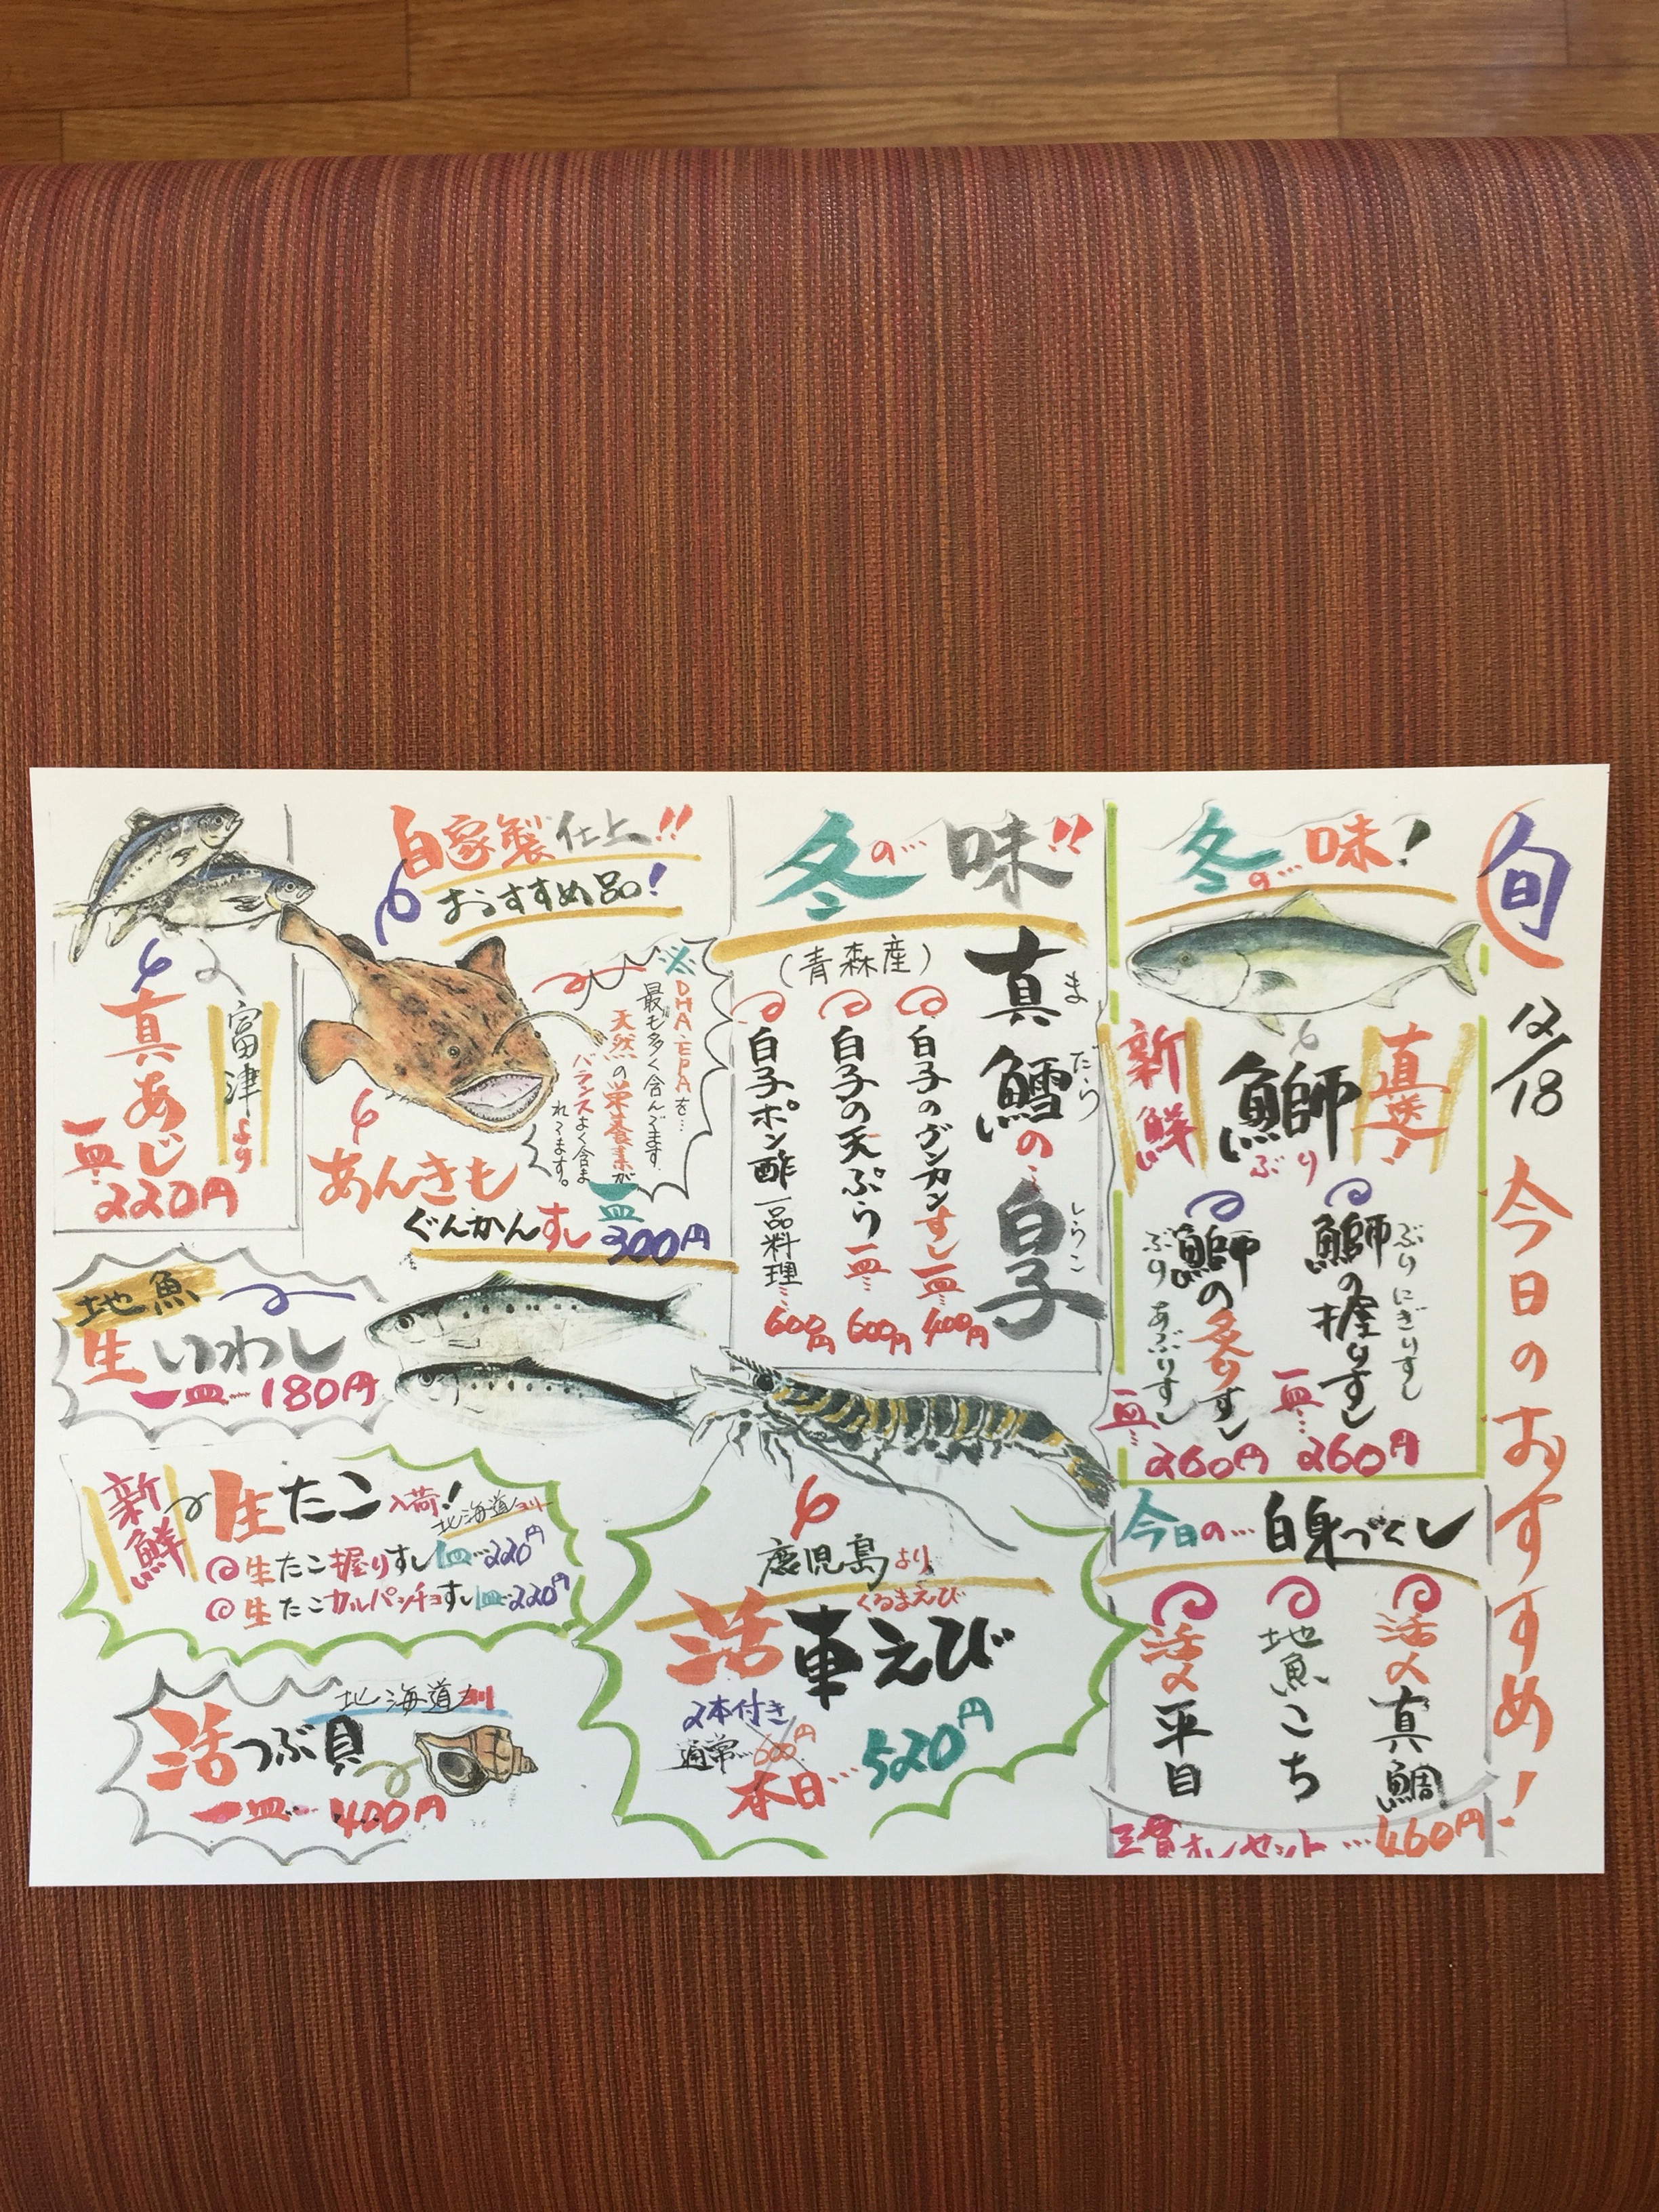 旬
12/18
今日のおすすめ！
冬の…味！
直送！
鰤
ぶり
新鮮
鰤の握りすし
ぶりにぎりすし
一皿…
260円
鰤の炙りすし
ぶりあぶりすし
一皿…
260円
今日の…白身づくし
活〆真鯛
地魚こち
活〆平目
三貫セット…460円
冬の…味!!
真鱈の…白子
まだら
しらこ
（青森産）
白子のグンカンすし一皿…400円
白子の天ぷら一皿…600円
白子ポン酢一品料理…600円
鹿児島より
くるまえび
活車えび
2本付き
通常…600円
本日…520円
自家製仕上!!
おすすめ品！
※DHA・EPAを…
最も多く含んでます。
天然の栄養素が
バランスよく含ま
れてます。
あんきも
ぐんかんすし
一皿
300円
富津より
真あじ
一皿…
220円
地魚
生いわし
一皿…180円
新鮮
生たこ入荷！
北海道より
生たこ握りすし一皿…220円
生たこカルパッチョすし一皿…220円
北海道より
活つぶ貝
一皿…400円